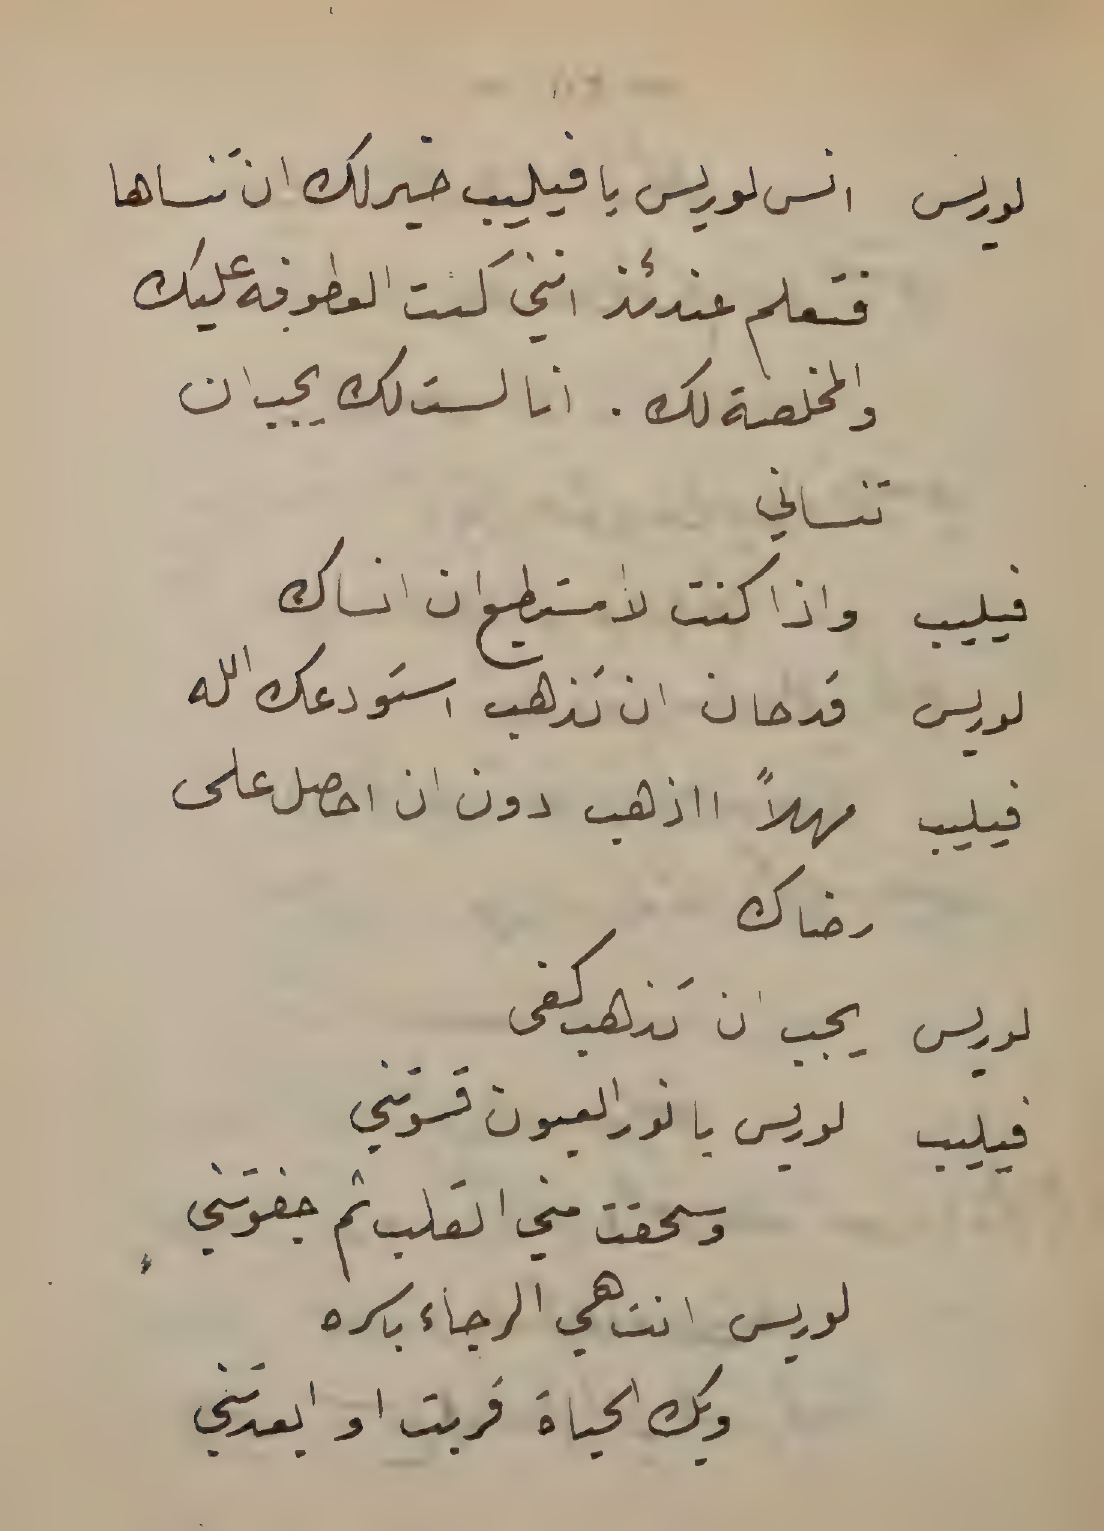 لوريس انس لوريس يا فيليب خير لك ان تنساها
فتعلم عندئذ انني كنت العطوفة عليك
والمخلصة لك . انا لست لك يجب ان
تنساني
فيليب واذا كنت لا استطيع ان انساك
لوريس قد حان ان تذهب استودعك الله
فيليب مهلاً ااذهب دون ان احصل على
رضاك
لوريس يجب ان تذهب كفى
فيليب لوريس يا نور العيون قسوتني
وسحقت مني القلب ثم جفوتني
لوريس انت هي الرجاء باسره
وبك الحياة قربت او ابعدتني